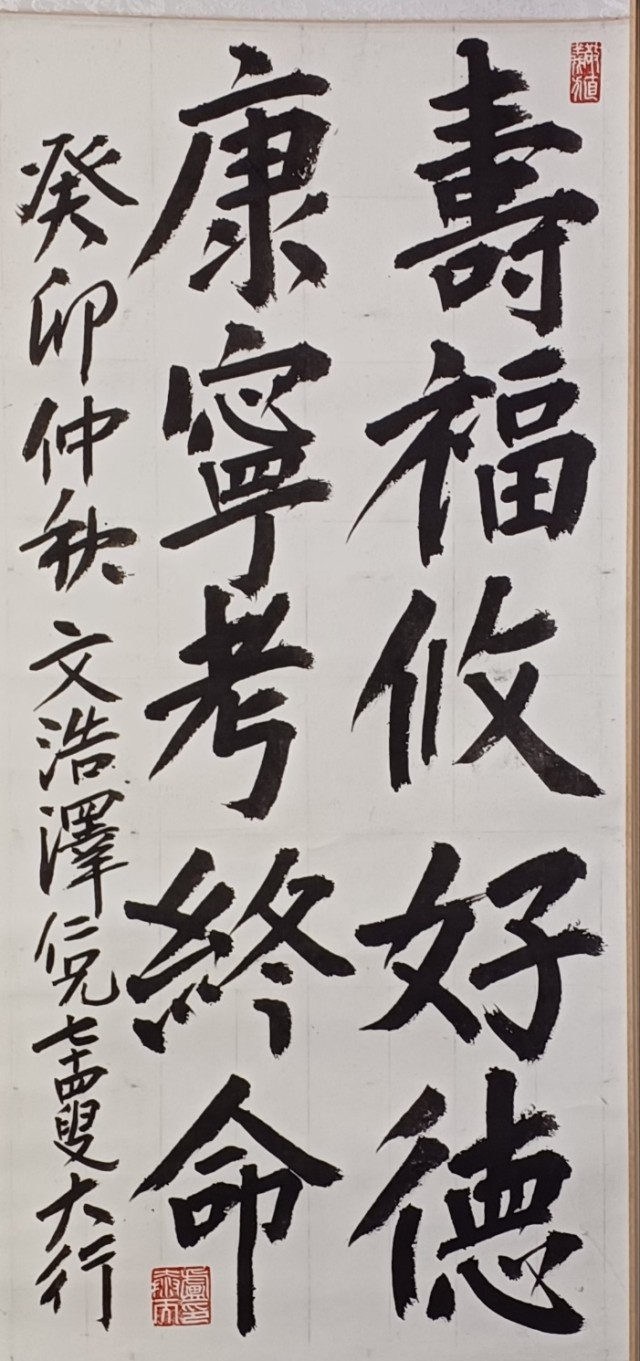 壽福攸好德
康寧考終命
癸卯仲秋 文浩澤仁兄 七十四叟 大行